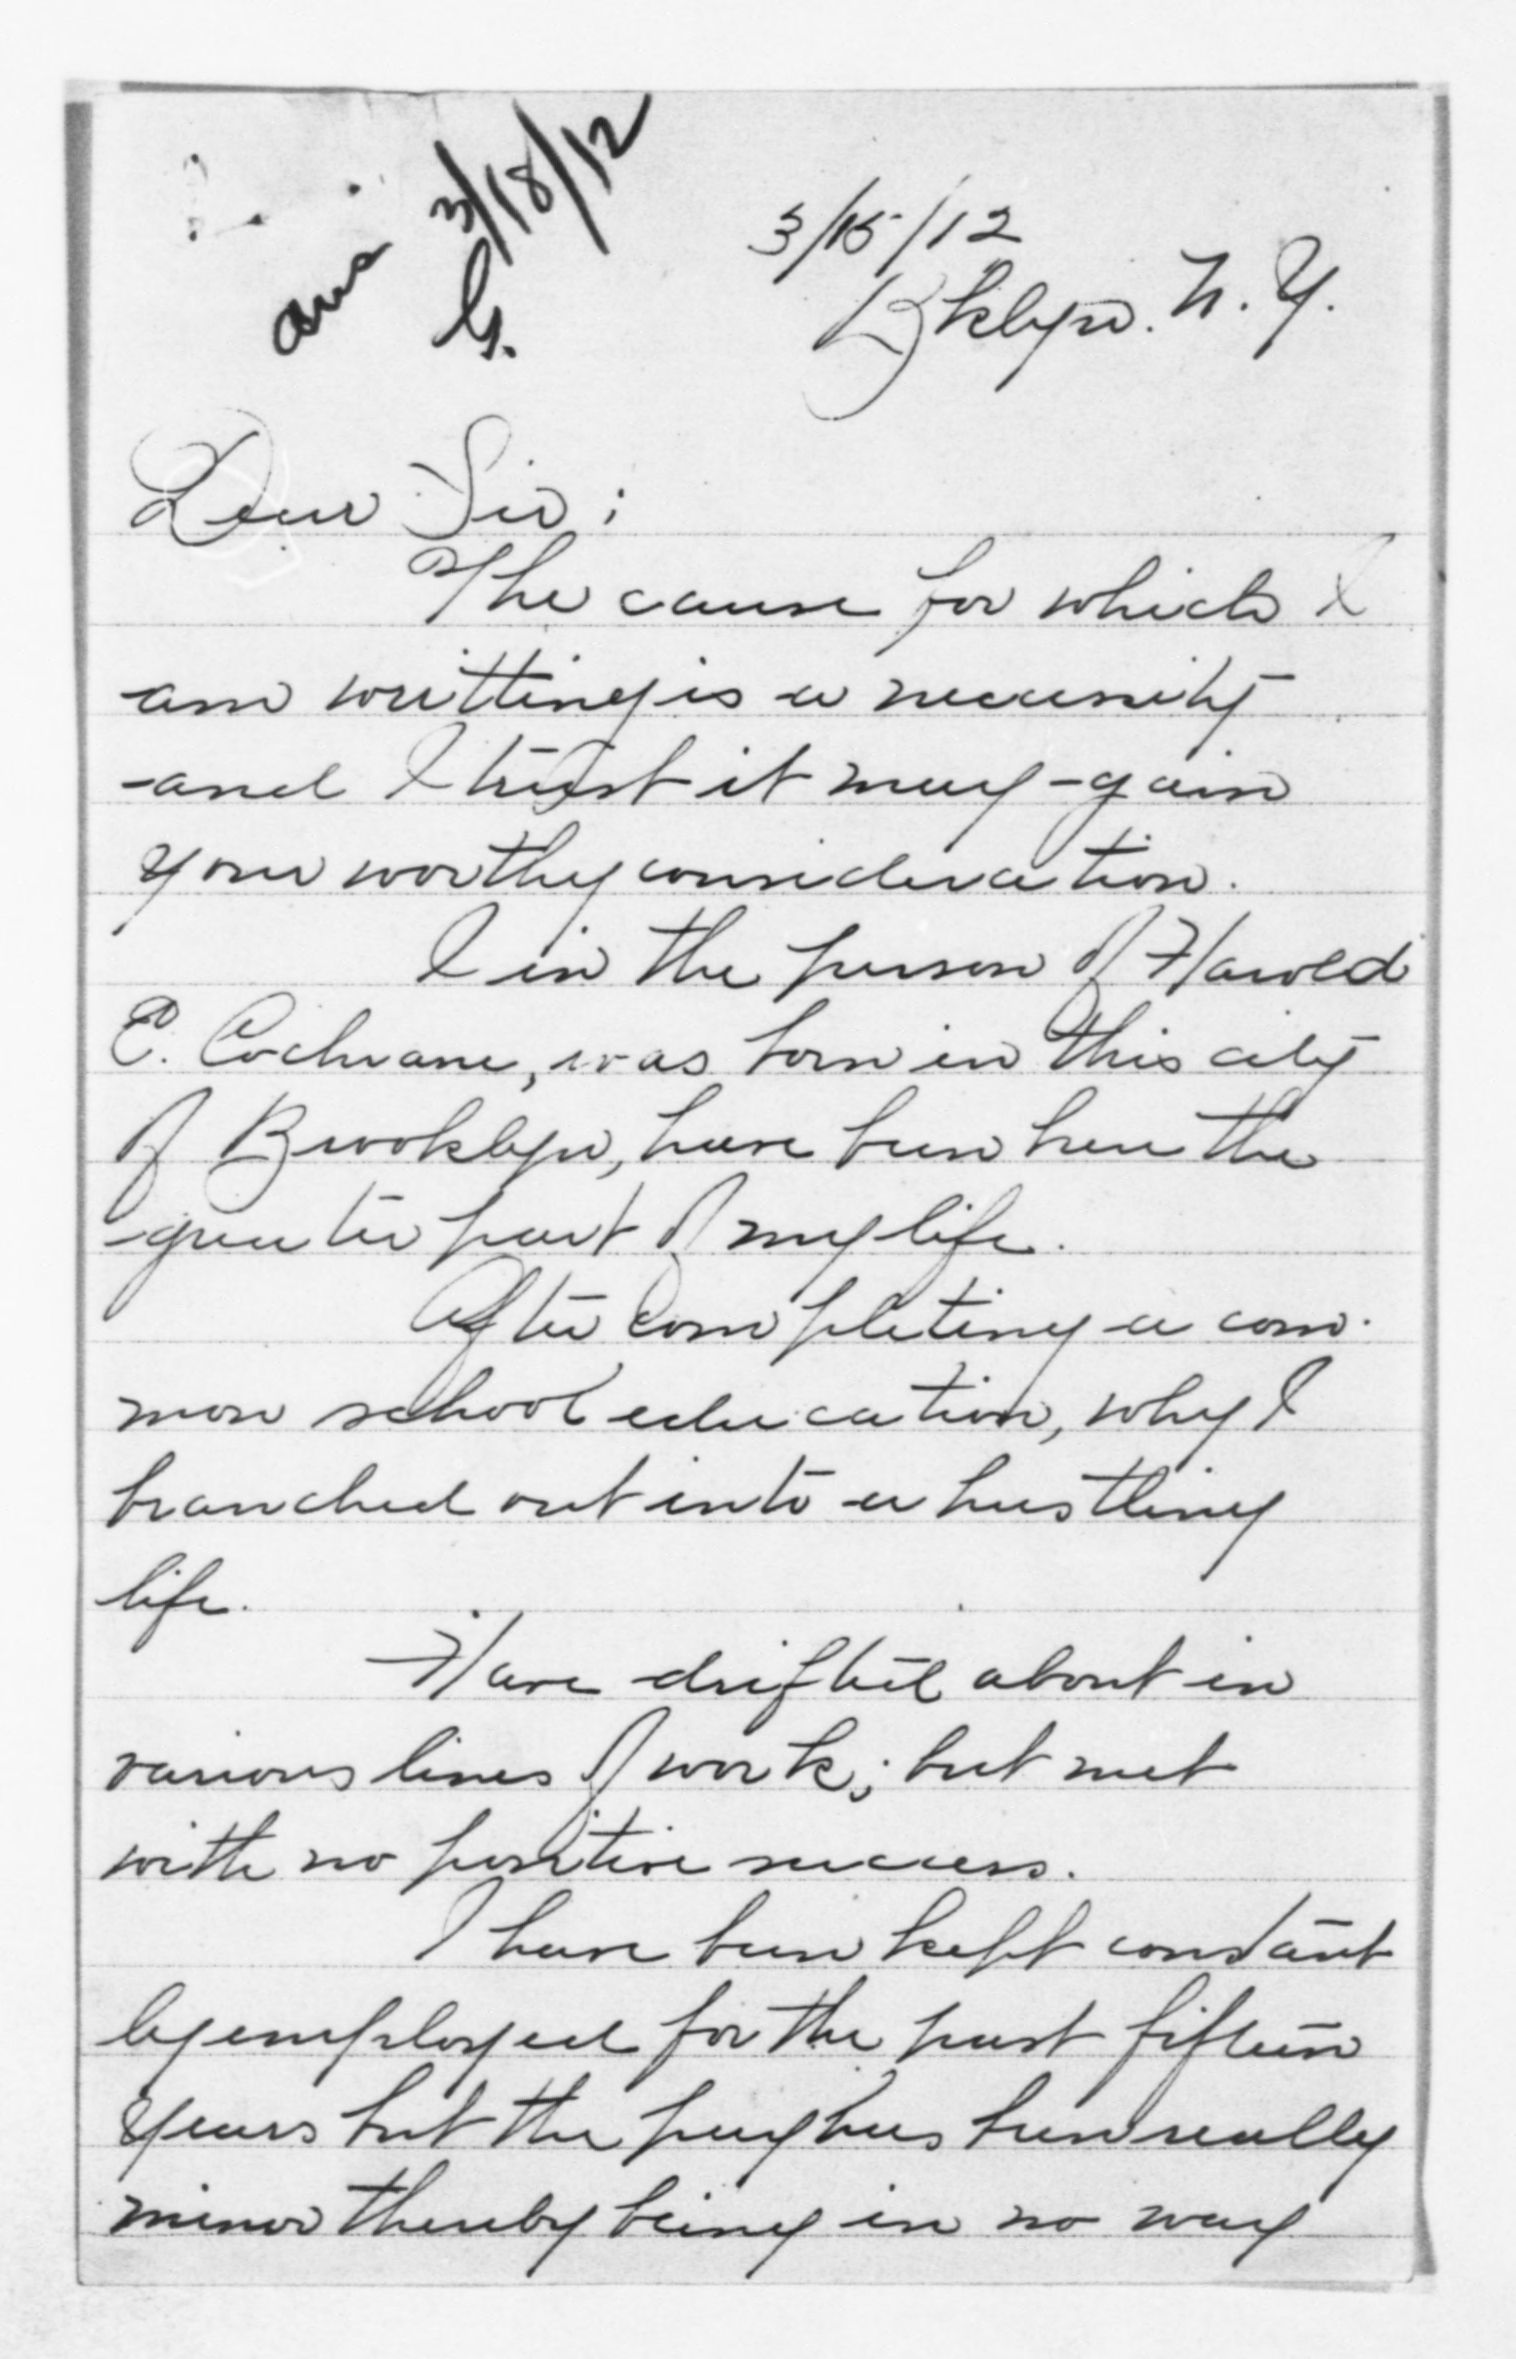 ans 3/18/12
G.
3/15/12
Bklyn. N. Y.
Dear Sir:
The cause for which I
am writting is a necessity
and I trust it may gain
your worthy consideration.
I in the person of Harold
E. Cochrane, was born in this city
of Brooklyn, have been here the
greater part of my life.
After completing a com-
mon school education, why I
branched out into a hustling
life.
Have drifted about in
various lines of work; but met
with no positive success.
I have been kept constant
ly employed for the past fifteen
years but the pay has been really
minor thereby being in no way